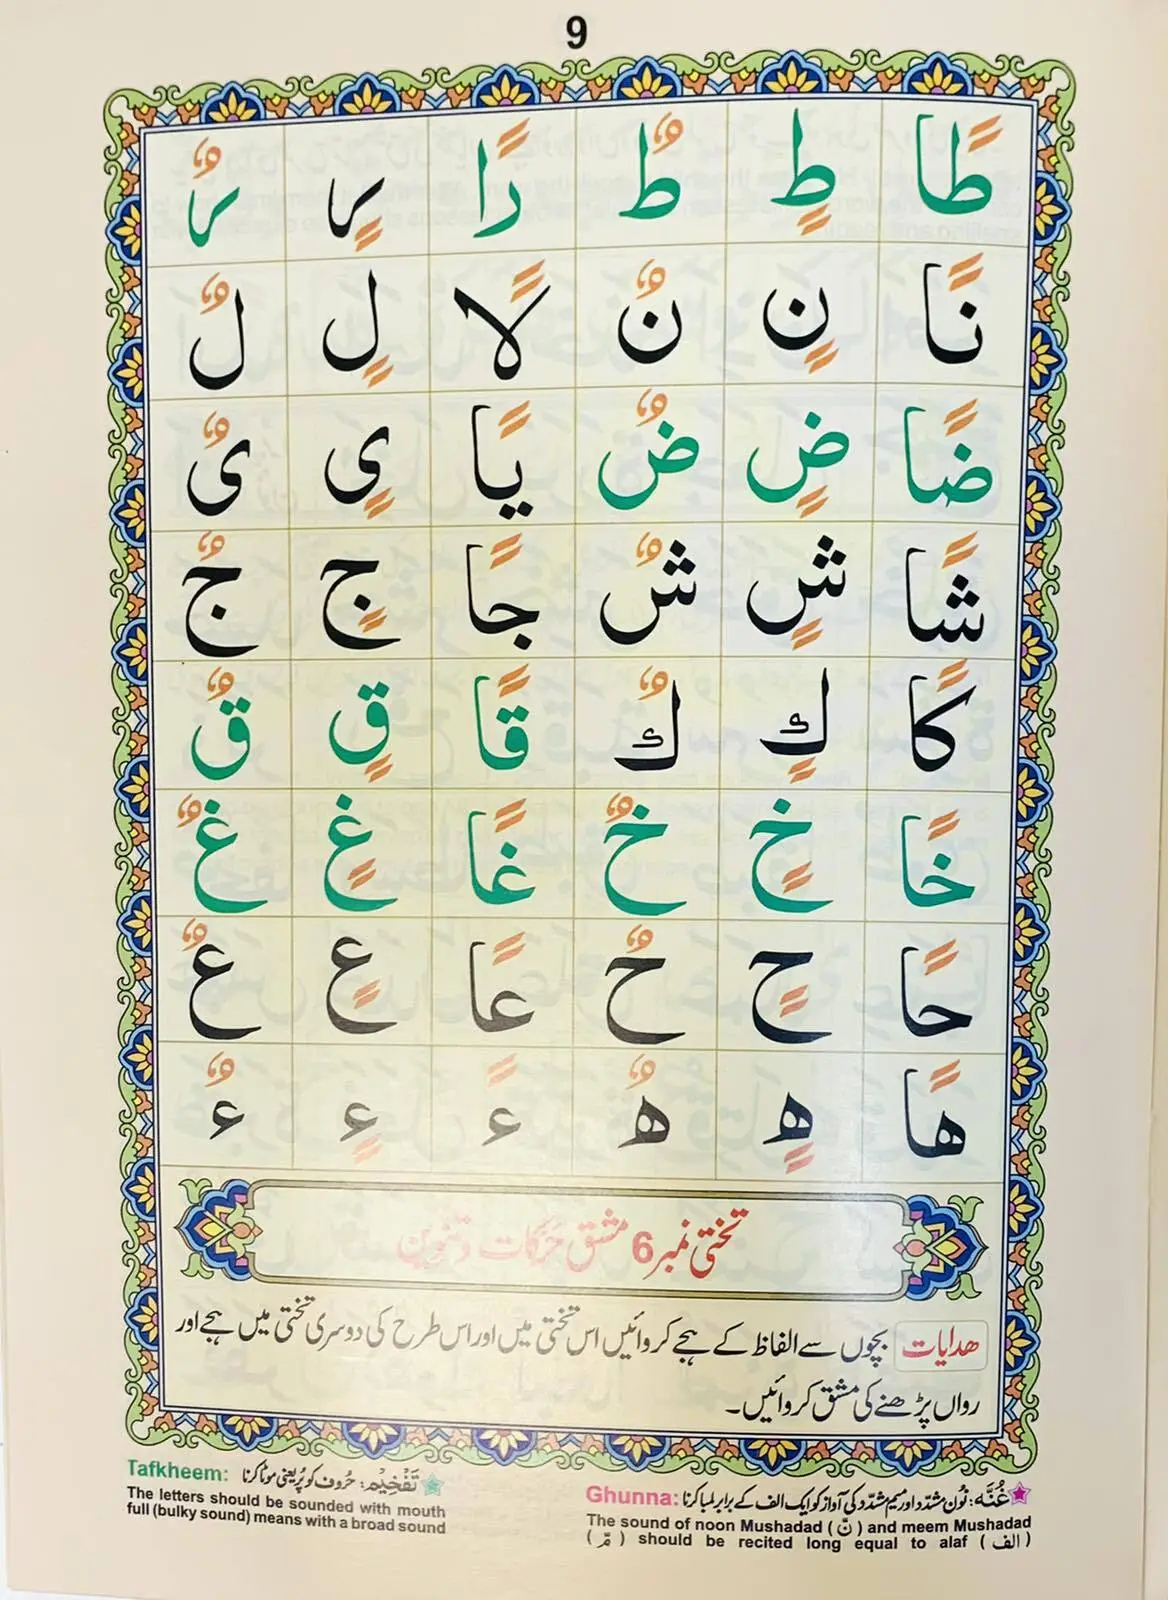 9
طًا طٍ طٌ رًا رٍ رٌ
نًا نٍ نٌ لًا لٍ لٌ
ضًا ضٍ ضٌ يًا ىٍ ىٌ
شًا شٍ شٌ جًا جٍ جٌ
كًا كٍ كٌ قًا قٍ قٌ
خًا خٍ خٌ غًا غٍ غٌ
حًا حٍ حٌ عًا عٍ عٌ
هًا هٍ هٌ ءً ءٍ ءٌ
تختی نمبر 6 مشق حرکات و تنوین
ھدایات بچوں سے الفاظ کے ہجے کروائیں اس تختی میں اور اس طرح کی دوسری تختی میں ہجے اور
رواں پڑھنے کی مشق کروائیں۔
غُنَّه: نُون مشدّد اور میم مشدّد کی آواز کو ایک الف کے برابر لمبا کرنا Ghunna:
The sound of noon Mushadad (نّ) and meem Mushadad
(مّ) should be recited long equal to alaf (الف)
تَفْخِيْم: حُروف کو پُر یعنی موٹا کرنا Tafkheem:
The letters should be sounded with mouth
full (bulky sound) means with a broad sound